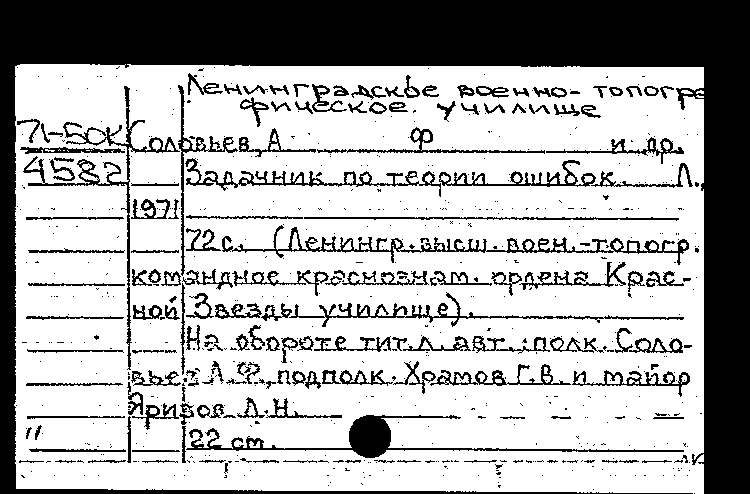 Ленинградское военно-топогра
фическое училище
71-50К Соловьев, А Ф и др.
4582 Задачник по теории ошибок. Л.,
1971
72 с. (Ленингр. высш. воен.-топогр.
командное краснознам. ордена Крас-
ной Звезды училище).
На обороте тит. л. авт.: полк. Соло-
вьев А.Ф., подполк. Храмов Г.В. и майор
Яризов Л.Н.
" 22 см.